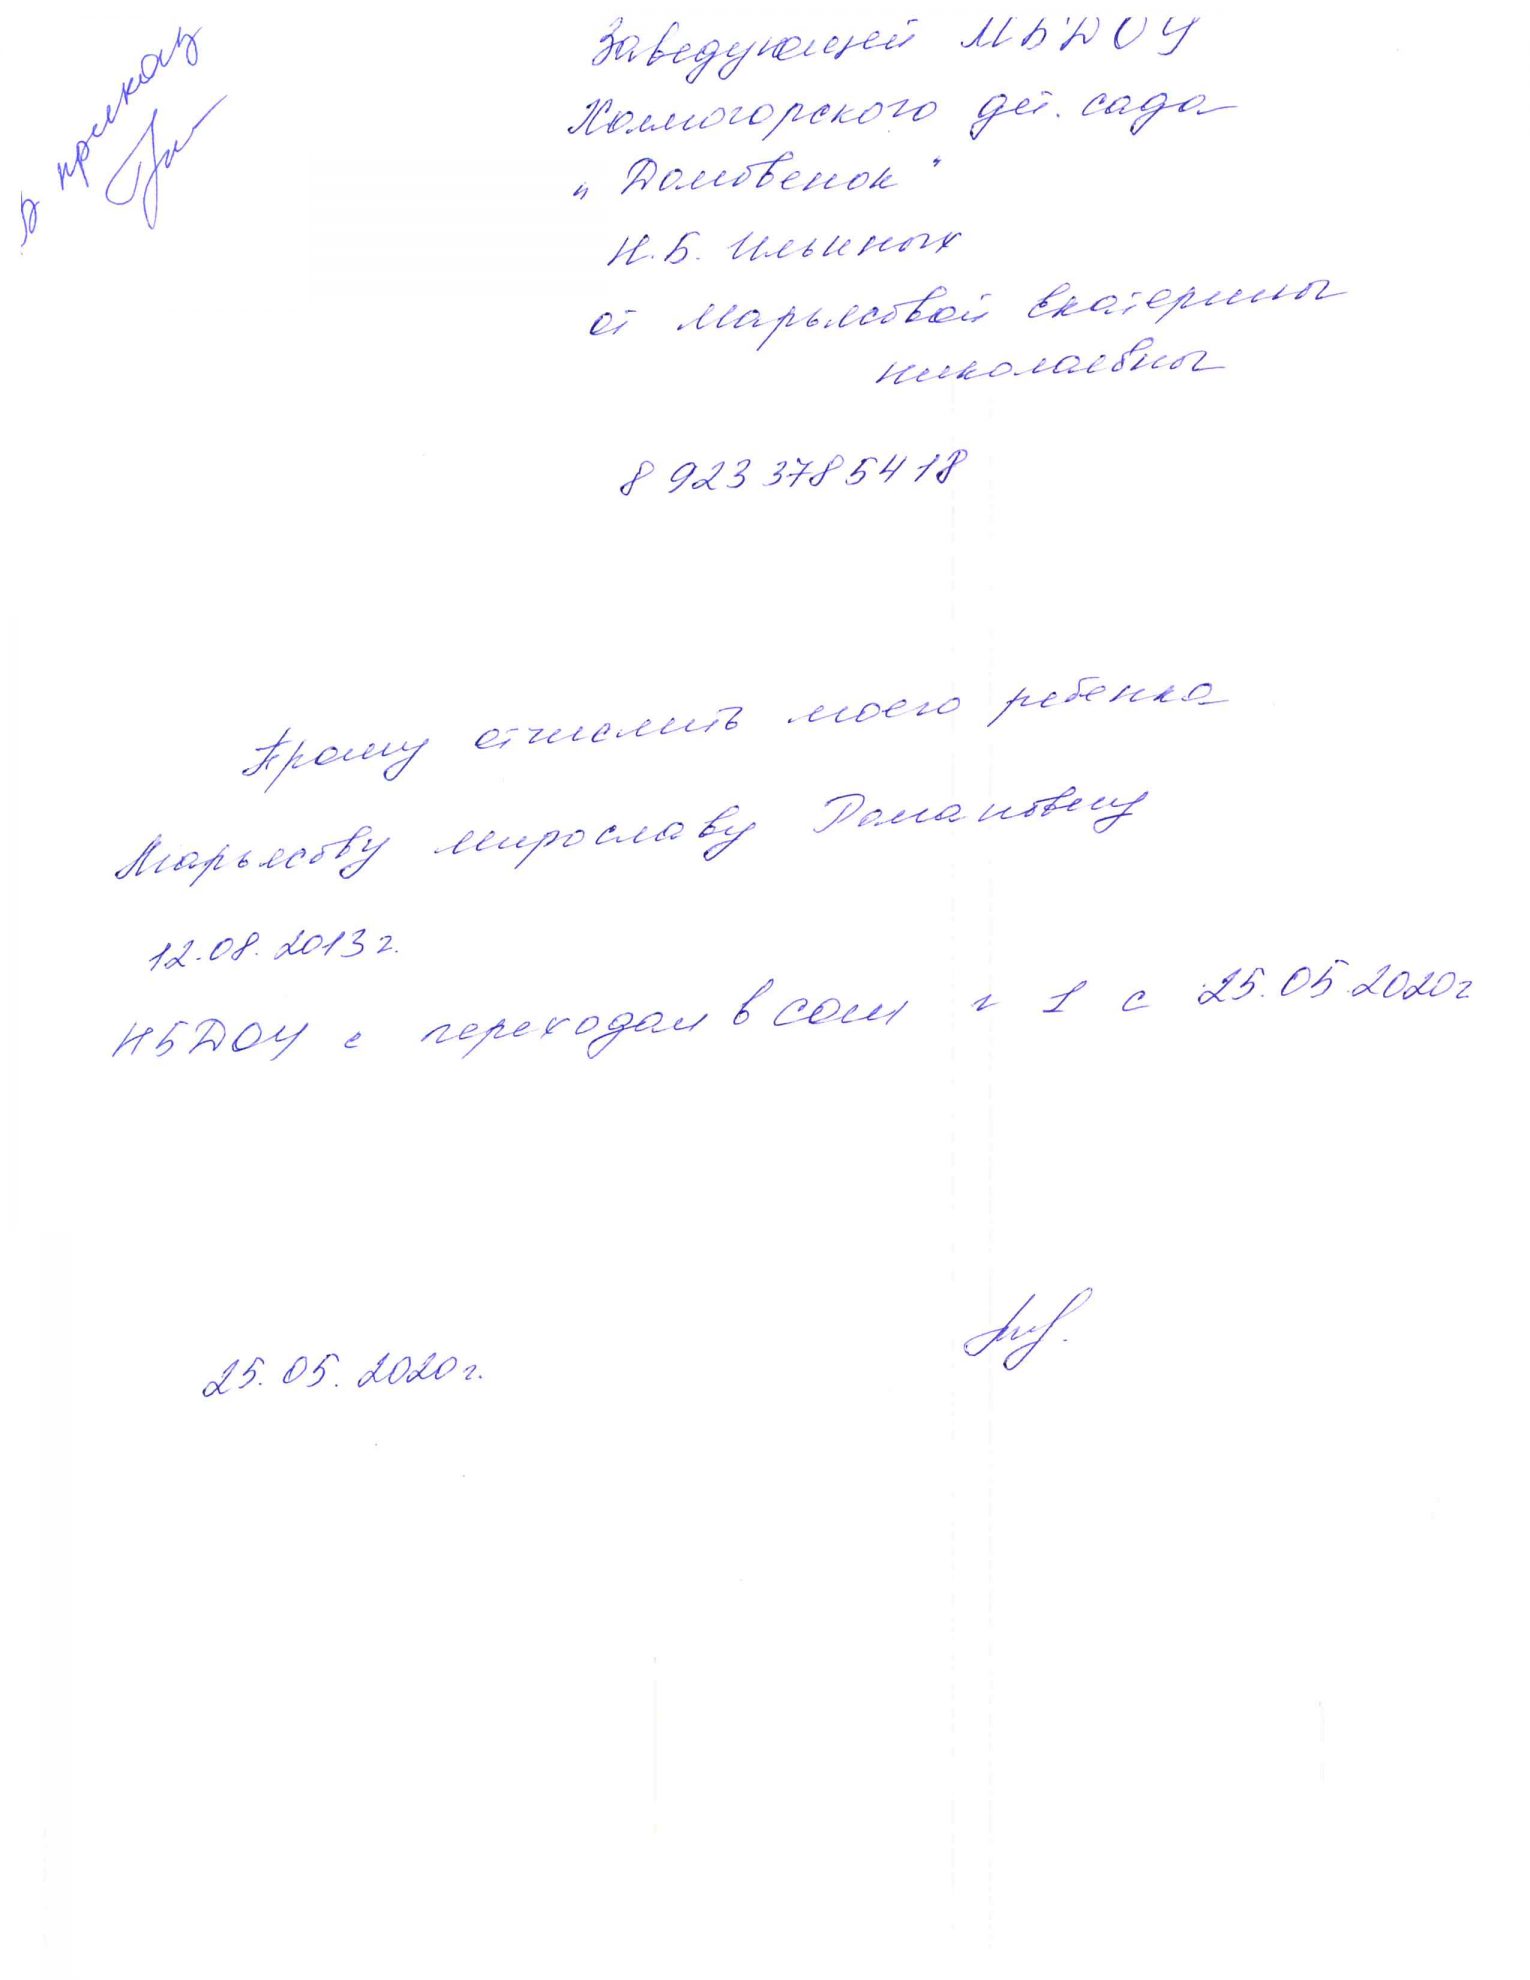 в приказ
Заведующей МБДОУ
Холмогорского дет. сада
"Домовенок"
Н.Б. Ильиных
от Марьясовой Екатерины
николаевны
8 923 378 54 18
Прошу отчислить моего ребенка
Марьясову мирославу Романовну
12.08.2013 г.
МБДОУ с переходом в сош № 1 с 25.05.2020г
25.05.2020г.